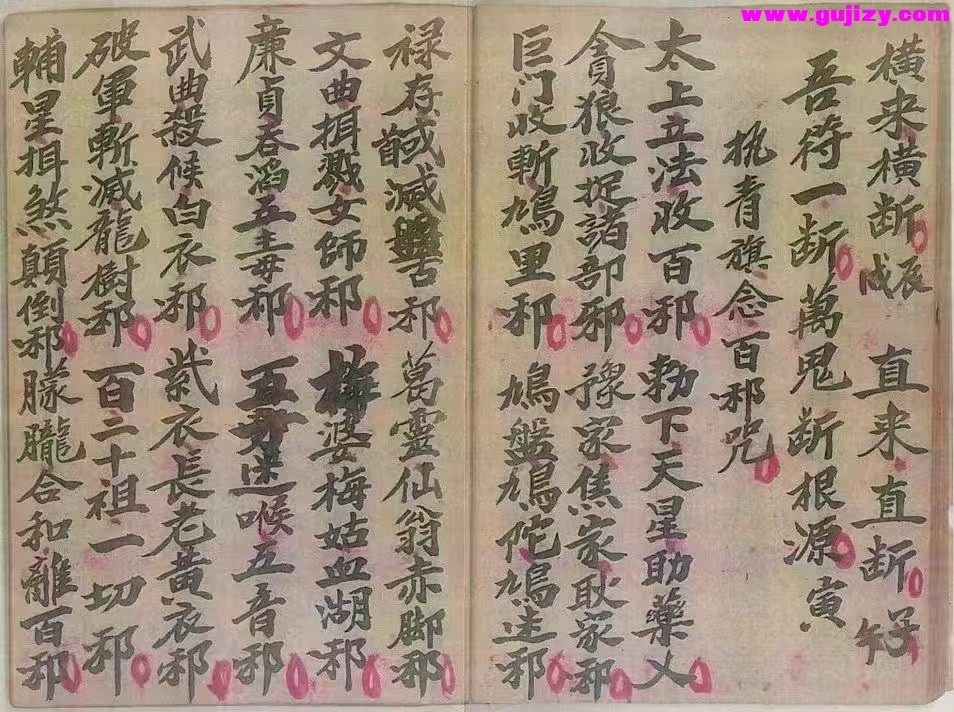 www.gujizy.com
横来横断 戊辰 直来直断 子午
吾符一断萬鬼断根源寅
执青旗念百邪咒
太上立法收百邪 勅下天星助藥乂
貪狼收捉諸部邪 豫家焦家耿家邪
巨门收斬鳩里邪 鳩盤鳩陀鳩迷邪
禄存馘滅 古邪 葛靈仙翁赤脚邪
文曲揖戮女師邪 梅婆梅姑血湖邪
廉貞吞滔五毒邪 五 迷喉五音邪
武曲殺候白衣邪 紫衣長老黄衣邪
破軍斬滅龍樹邪 百二十祖一切邪
輔星揖煞顛倒邪 朦朧合和離百邪